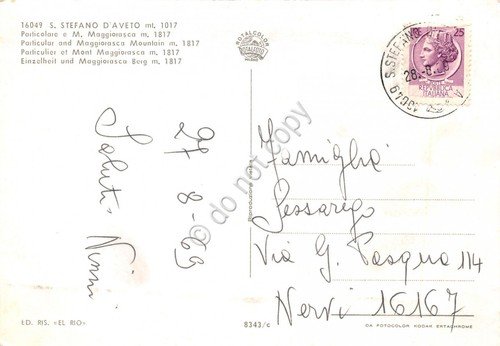 16049 S. STEFANO D'AVETO mt. 1017
Particolare e M. Maggiorasca m. 1817
Particular and Maggiorasca Mountain m. 1817
Particulier et Mont Maggiorasca m. 1817
Einzelheit und Maggiorasca Berg m. 1817
ROTALCOLOR
25
REPVBBLICA
ITALIANA
S.STEFANO
28.-8.
16049
27-8-69
Saluti
Ninni
Famiglia
Pessarego
Via G. Pasqua 114
Nervi 16167
do not copy
ED. RIS. «EL RIO»
8343/c
DA FOTOCOLOR KODAK EKTACHROME